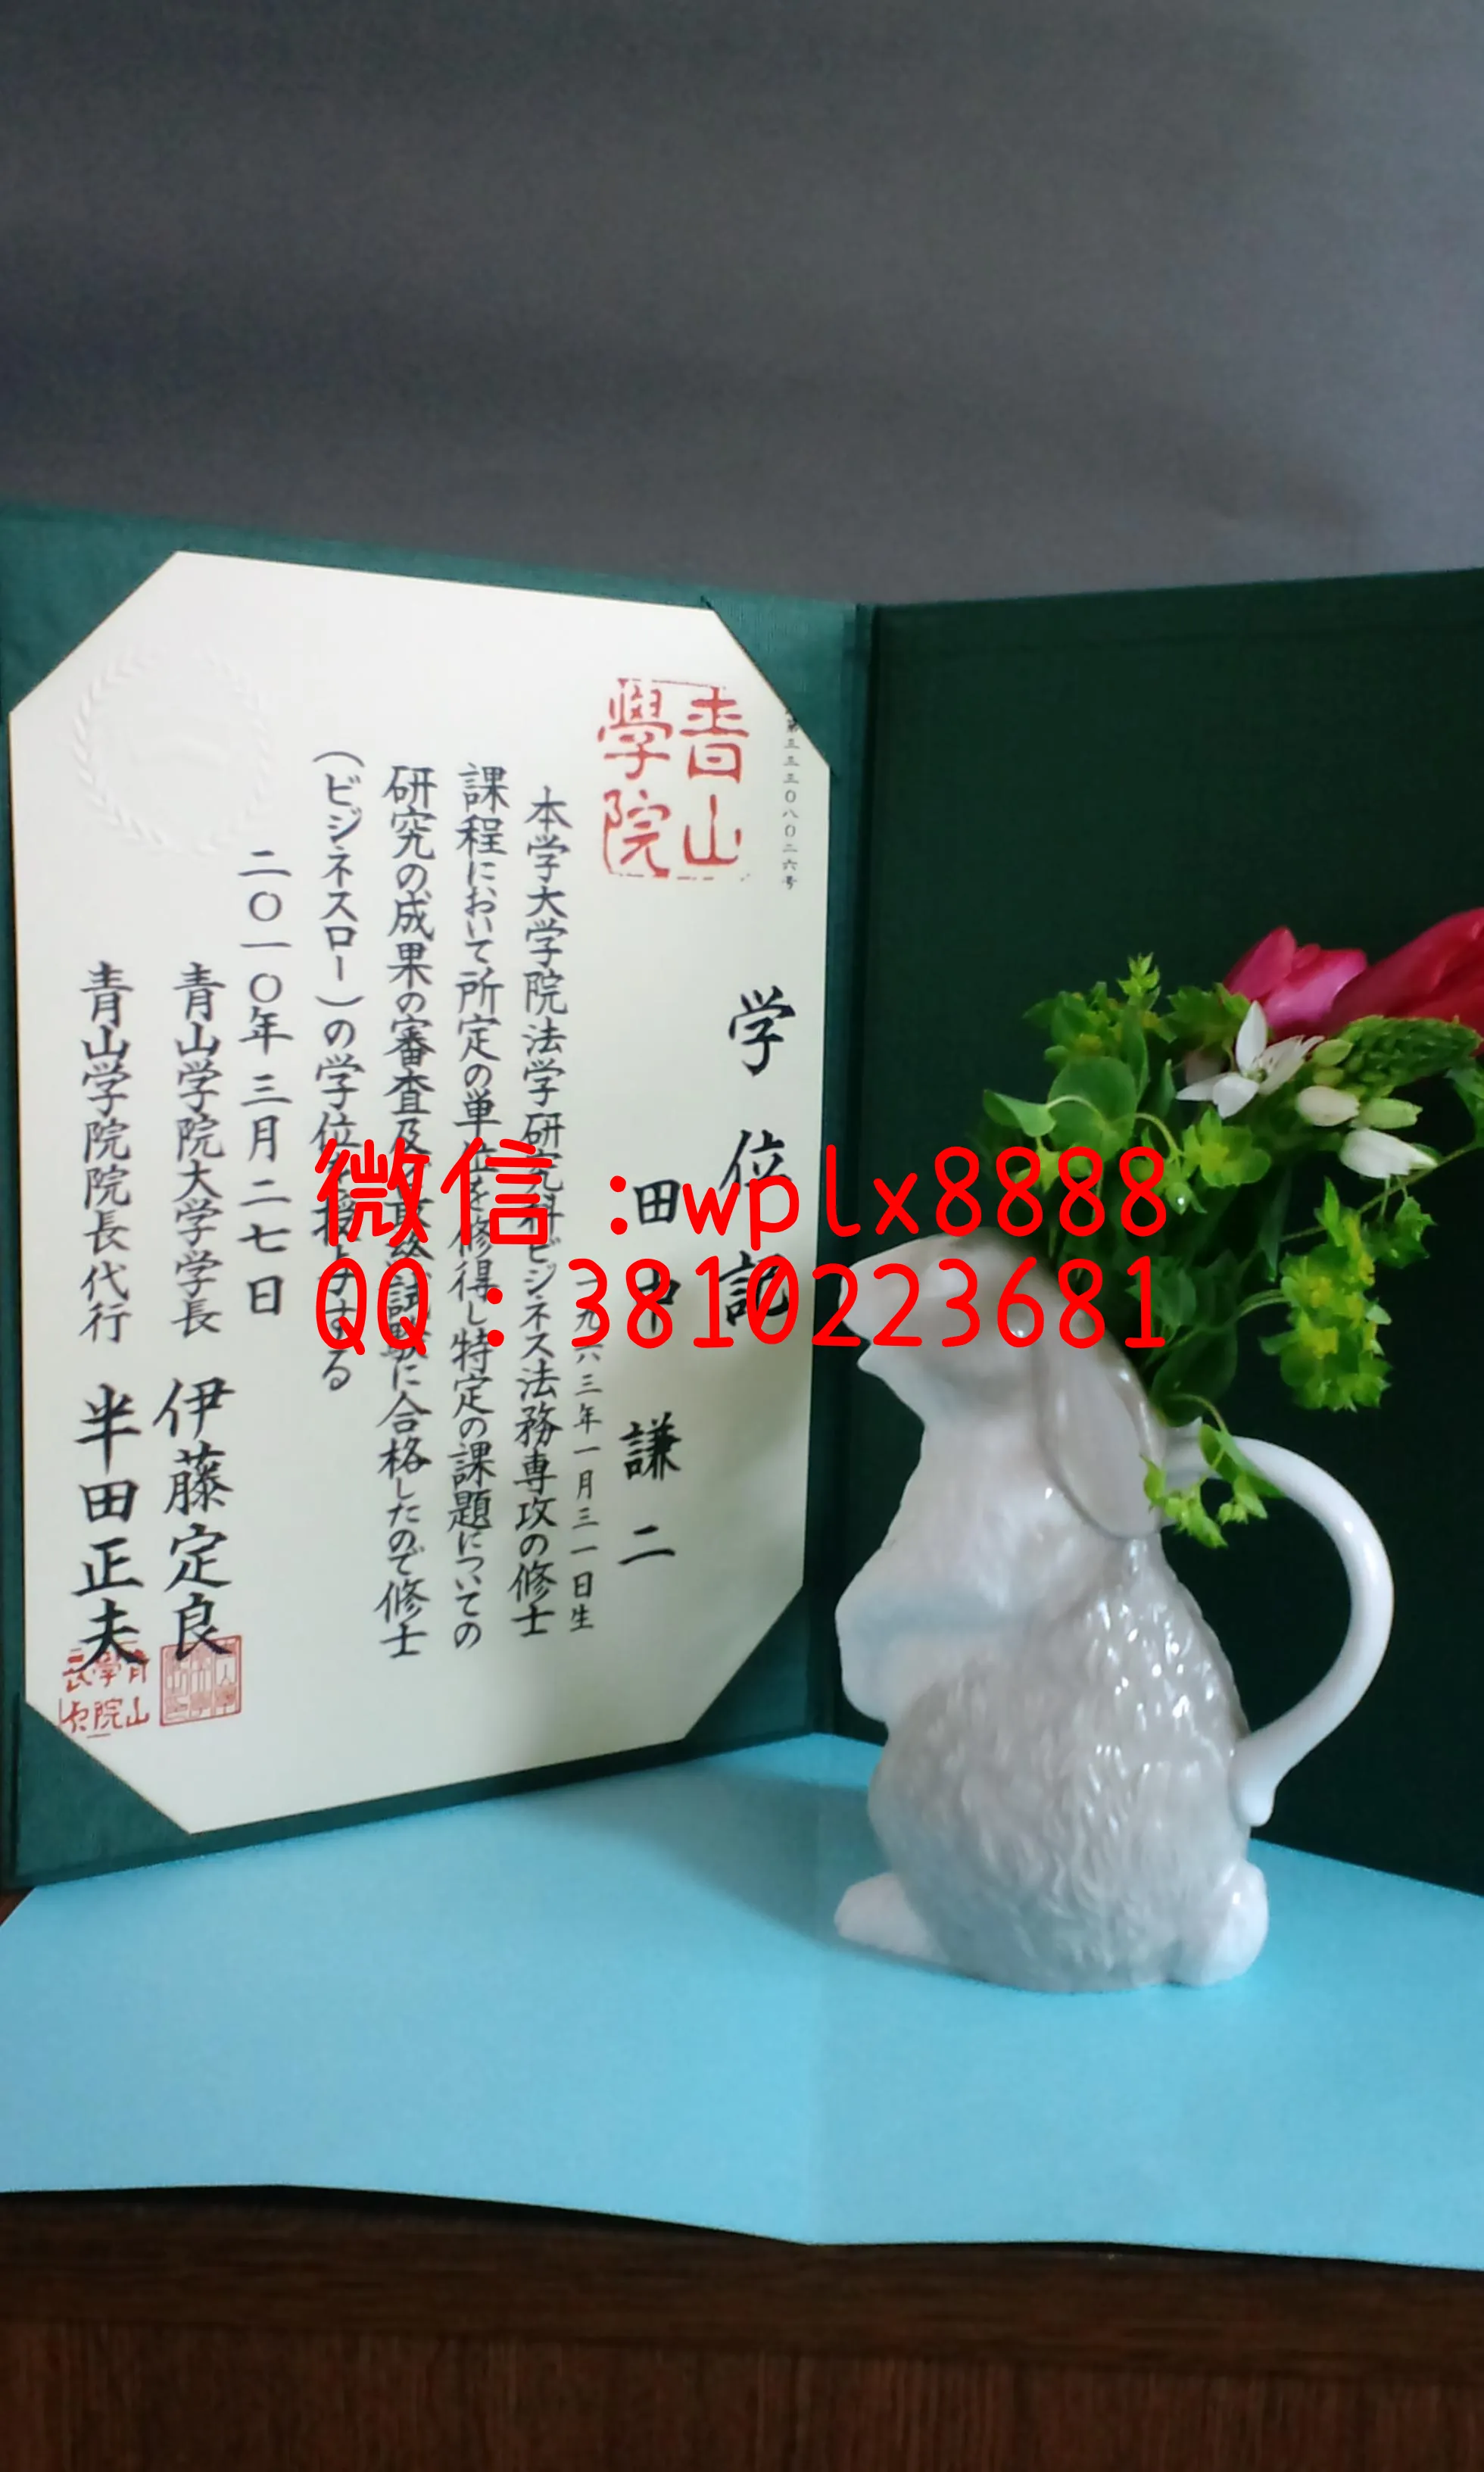 第三三三〇八〇二六号
青山
學院
学位記
田中謙二
一九六三年一月三一日生
本学大学院法学研究科ビジネス法務専攻の修士
課程において所定の単位を修得し特定の課題についての
研究の成果の審査及び最終試験に合格したので修士
（ビジネスロー）の学位を授与する
二〇一〇年三月二七日
青山学院大学学長 伊藤定良
青山学院院長代行 半田正夫
微信：wplx8888
QQ：3810223681